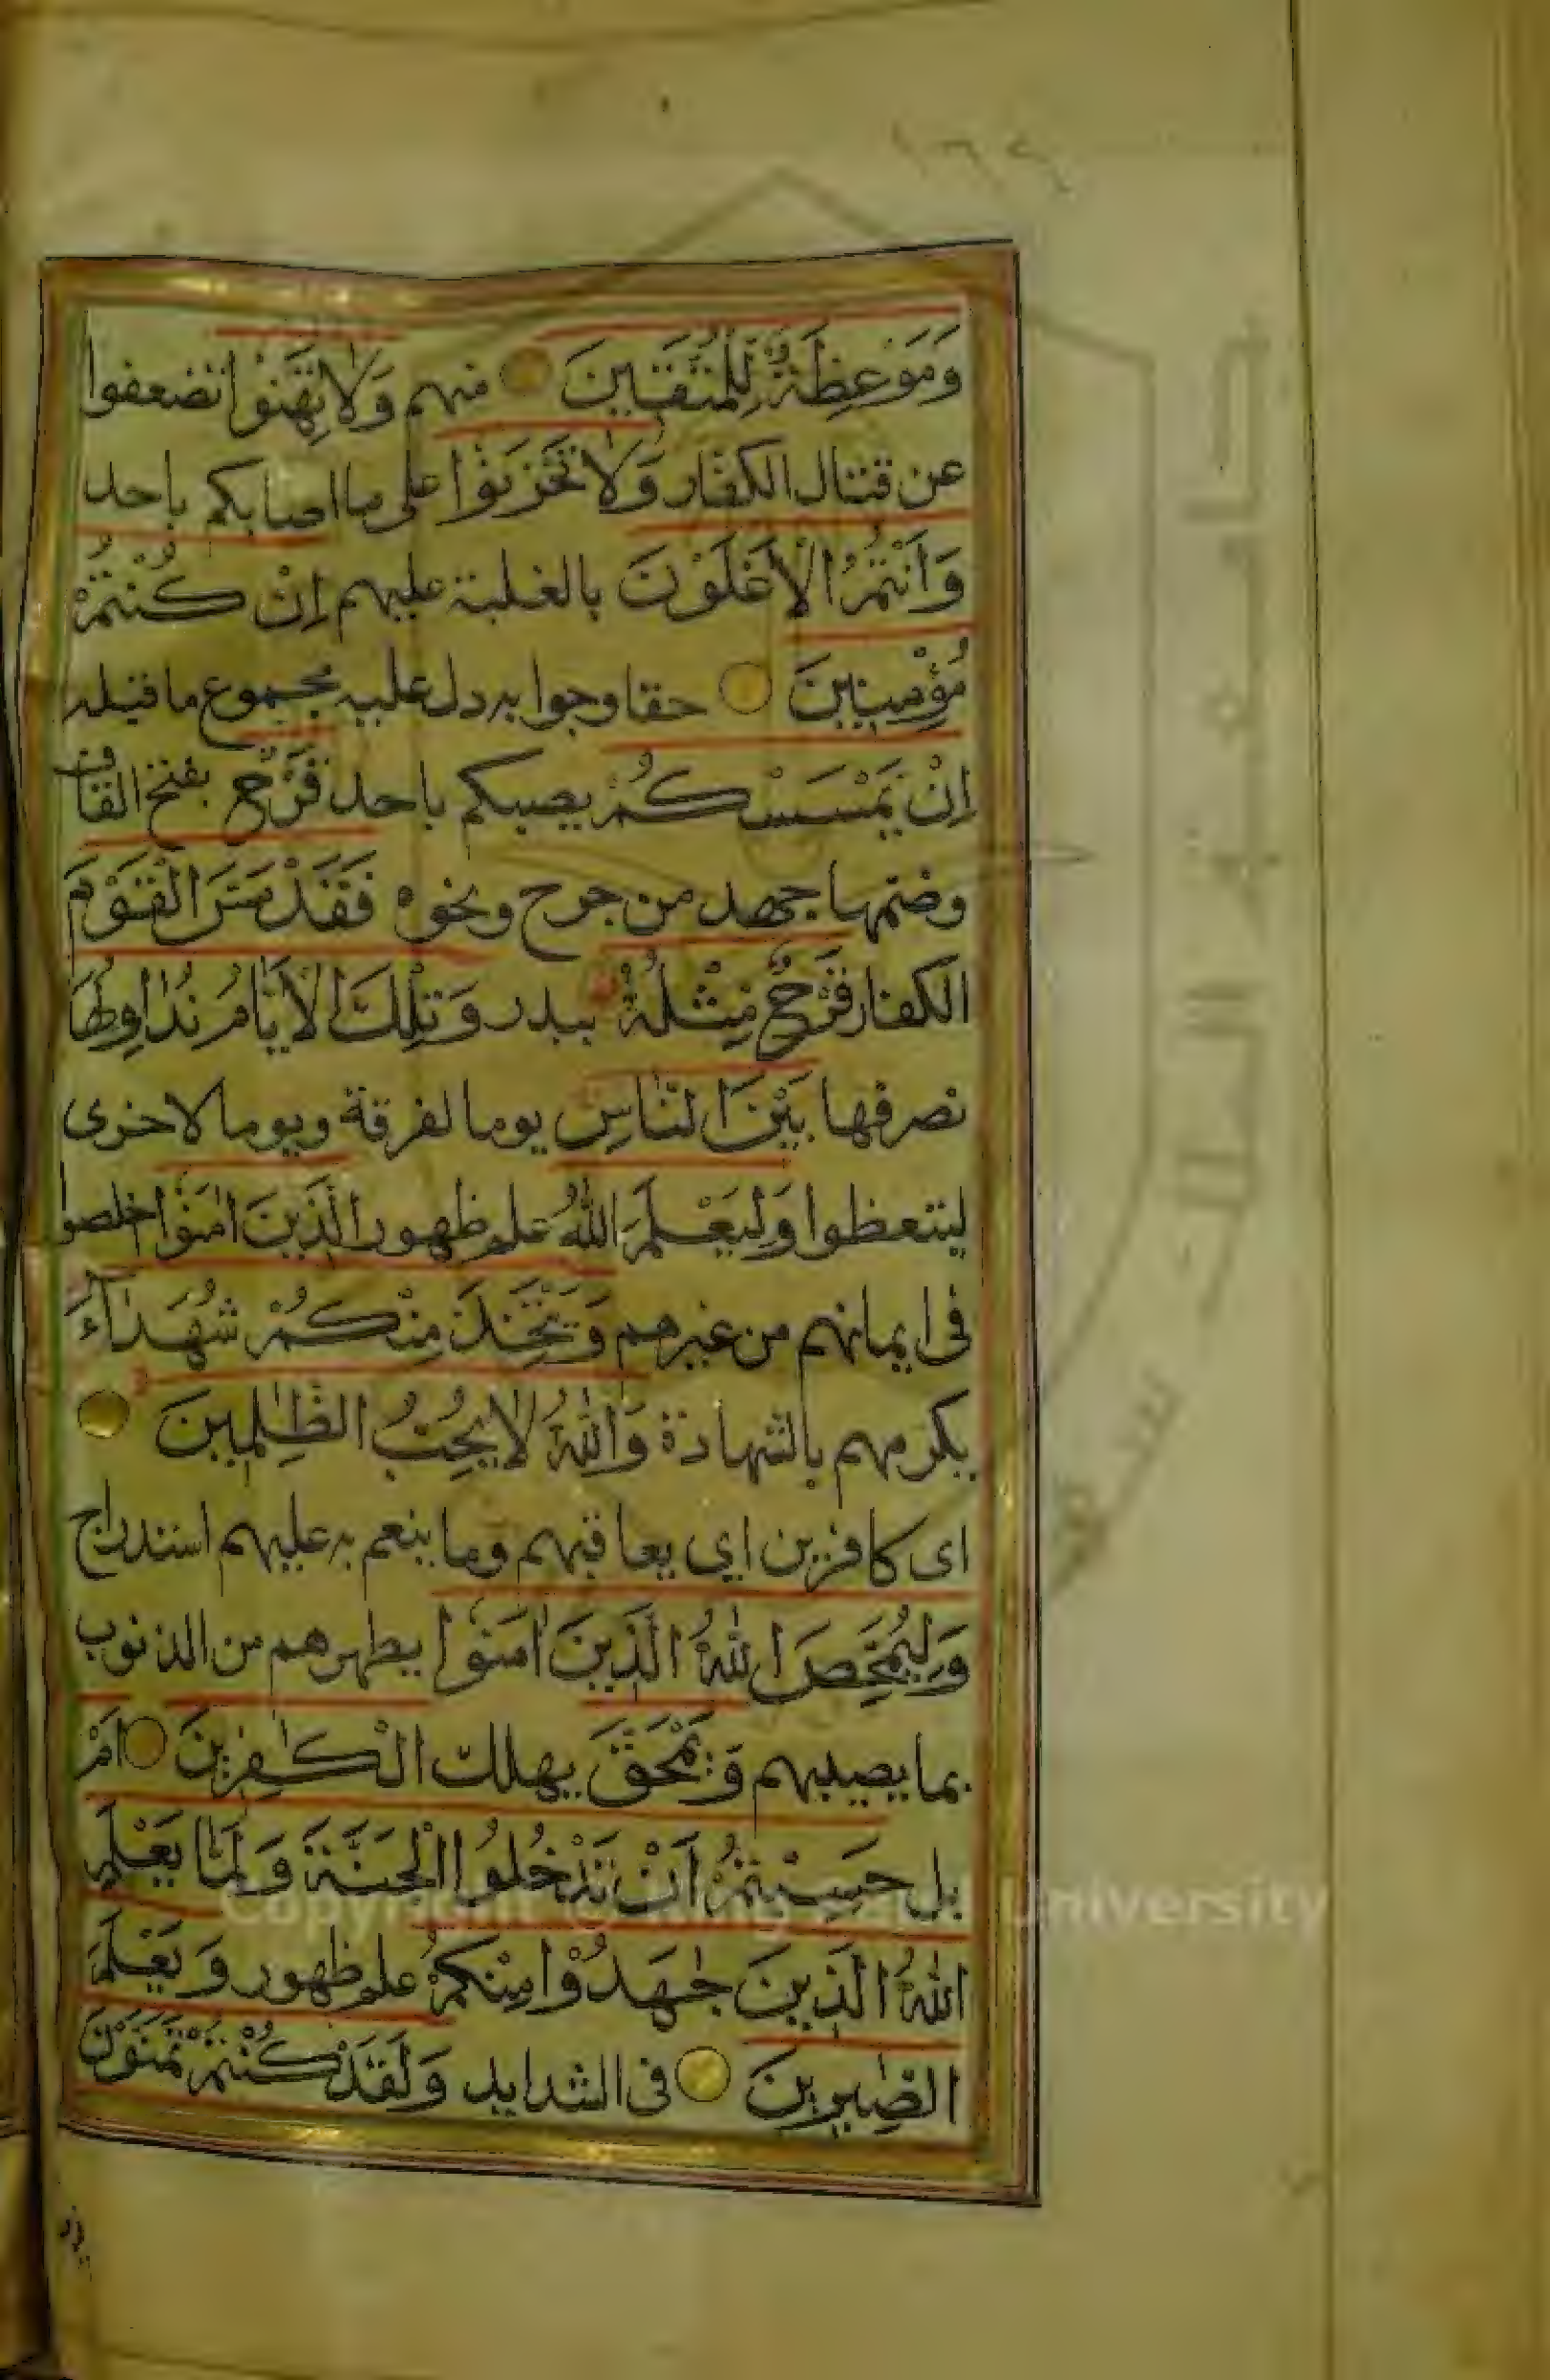 وَمَوْعِظَةٌ لِلْمُتَّقِينَ منهم وَلَا تَهِنُوا تضعفوا
عن قتال الكفار وَلَا تَحْزَنُوا على ما اصابكم باحد
وَاَنْتُمُ الْاَعْلَوْنَ بالغلبة عليهم اِنْ كُنْتُمْ
مُؤْمِنِينَ حقا وجوابه دل عليه مجموع ما قبله
اِنْ يَمْسَسْكُمْ يصبكم باحد قَرْحٌ بفتح القاف
وضمها جهد من جرح ونحوه فَقَدْ مَسَّ الْقَوْمَ
الكفار قَرْحٌ مِثْلُهُ ببدر وَتِلْكَ الْاَيَّامُ نُدَاوِلُهَا
نصرفها بَيْنَ النَّاسِ يوما لفرقة ويوما لاخرى
ليتعظوا وَلِيَعْلَمَ اللّٰهُ علم ظهور الَّذِينَ اٰمَنُوا اخلصوا
فى ايمانهم من غيرهم وَيَتَّخِذَ مِنْكُمْ شُهَدَاۤءَ
يكرمهم بالشهادة وَاللّٰهُ لَا يُحِبُّ الظّٰلِمِينَ
اى كافرين اي يعاقبهم وما ينعم به عليهم استدراج
وَلِيُمَحِّصَ اللّٰهُ الَّذِينَ اٰمَنُوا يطهرهم من الذنوب
بما يصيبهم وَيَمْحَقَ يهلك الْكٰفِرِينَ اَمْ
بل حَسِبْتُمْ اَنْ تَدْخُلُوا الْجَنَّةَ وَلَمَّا يَعْلَمِ
اللّٰهُ الَّذِينَ جٰهَدُوْا مِنْكُمْ علم ظهور وَيَعْلَمَ
الصّٰبِرِينَ فى الشدايد وَلَقَدْ كُنْتُمْ تَمَنَّوْنَ
Copyright © King Saud University